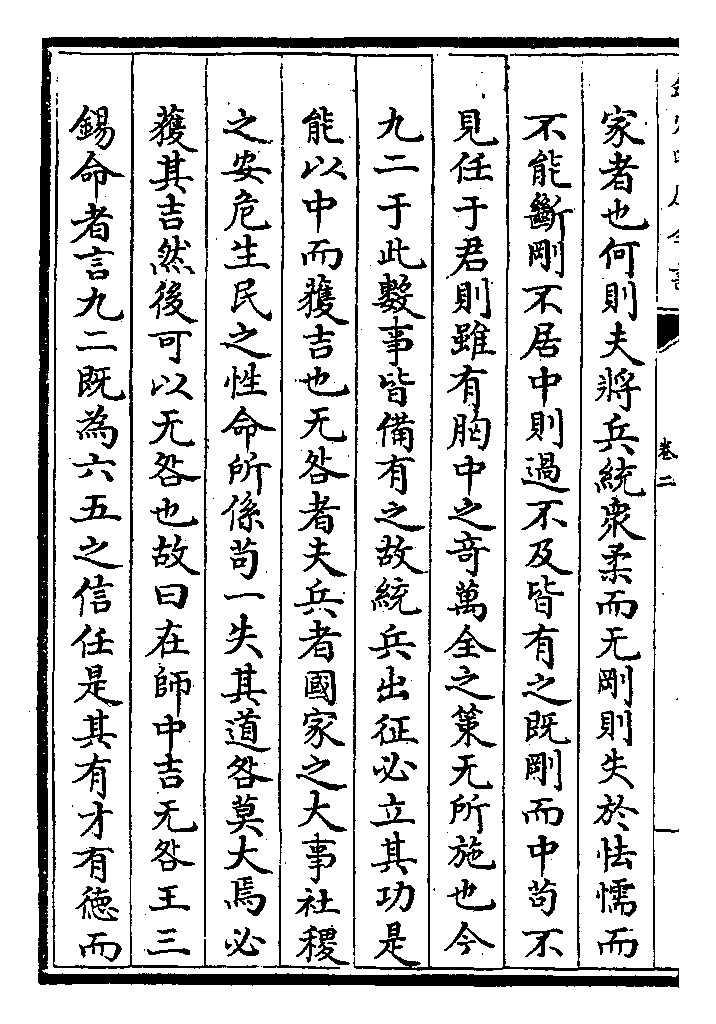 家者也何則夫將兵統衆柔而无剛則失於怯懦而
不能斷剛不居中則過不及皆有之既剛而中苟不
見任于君則雖有胸中之竒萬全之策无所施也今
九二于此數事皆備有之故統兵出征必立其功是
能以中而獲吉也无咎者夫兵者國家之大事社稷
之安危生民之性命所係苟一失其道咎莫大焉必
獲其吉然後可以无咎也故曰在師中吉无咎王三
錫命者言九二既為六五之信任是其有才有德而
卷二